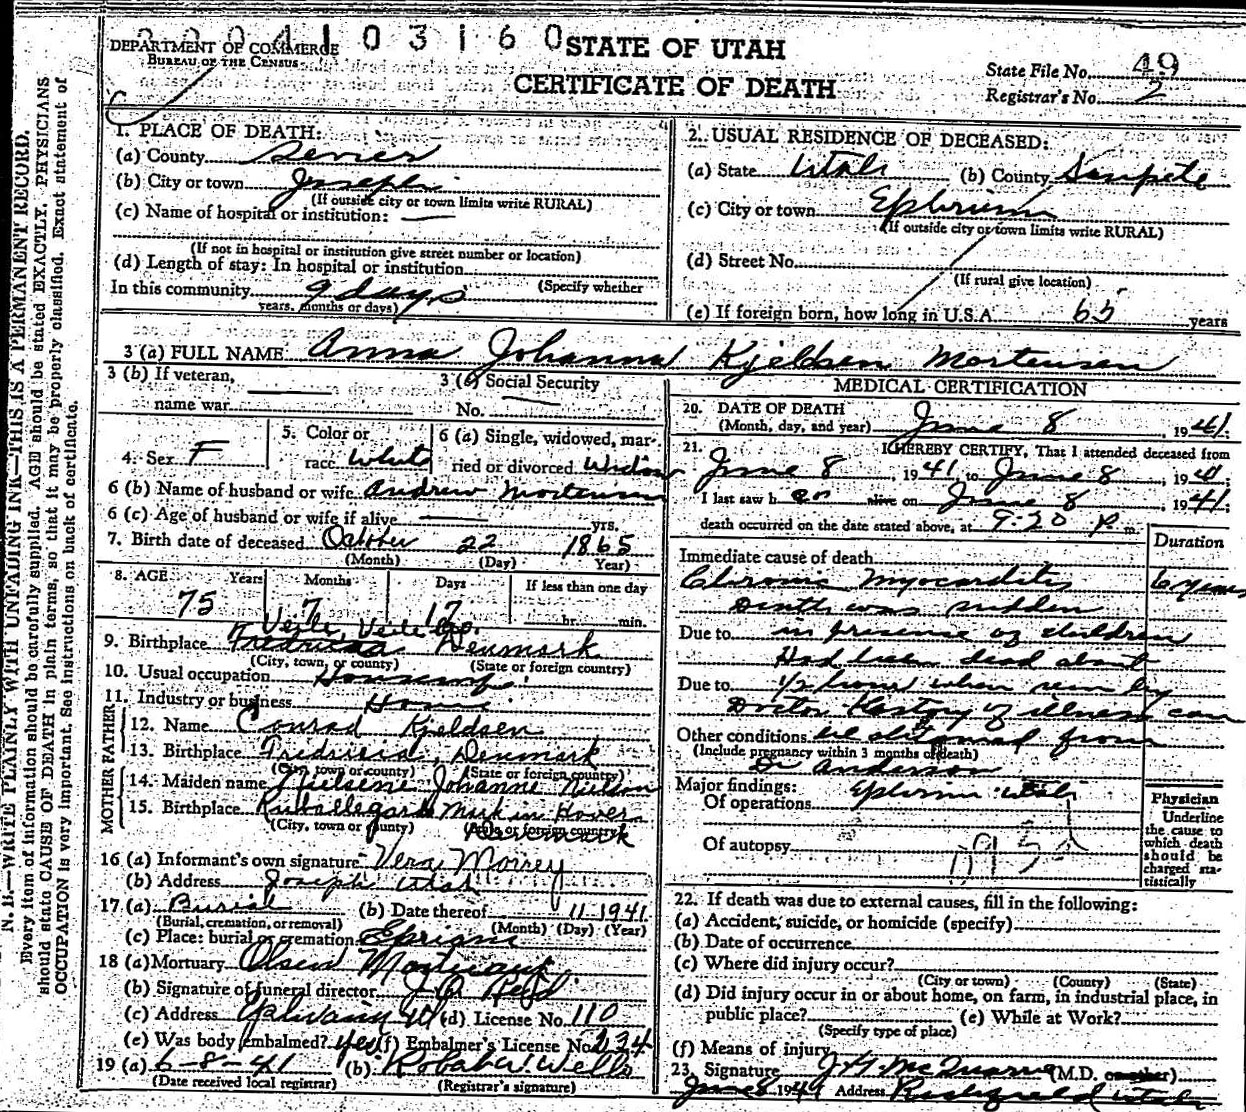 2 0 0 4 1 0 3 1 6 0
DEPARTMENT OF COMMERCE
BUREAU OF THE CENSUS
STATE OF UTAH
CERTIFICATE OF DEATH
State File No. 49
Registrar's No. 2
N. B.—WRITE PLAINLY WITH UNFADING INK—THIS IS A PERMANENT RECORD.
Every item of information should be carefully supplied. AGE should be stated EXACTLY. PHYSICIANS
should state CAUSE OF DEATH in plain terms, so that it may be properly classified. Exact statement of
OCCUPATION is very important. See instructions on back of certificate.
1. PLACE OF DEATH:
(a) County Sevier
(b) City or town Joseph
(If outside city or town limits write RURAL)
(c) Name of hospital or institution:
(If not in hospital or institution give street number or location)
(d) Length of stay: In hospital or institution
(Specify whether
In this community 9 days
years, months or days)
2. USUAL RESIDENCE OF DECEASED:
(a) State Utah (b) County Sanpete
(c) City or town Ephrium
(If outside city or town limits write RURAL)
(d) Street No.
(If rural give location)
(e) If foreign born, how long in U.S.A. 65 years
3 (a) FULL NAME Anna Johanna Kjeldsen Mortensen
3 (b) If veteran,
name war
3 (c) Social Security
No.
4. Sex F
5. Color or
race White
6 (a) Single, widowed, mar-
ried or divorced Widow
6 (b) Name of husband or wife Andrew Mortensen
6 (c) Age of husband or wife if alive yrs.
7. Birth date of deceased October 22 1865
(Month) (Day) Year)
8. AGE Years Months Days If less than one day
75 7 17 hr. min.
Veile Veile Co.
9. Birthplace Fredricia Denmark
(City, town, or county) (State or foreign country)
10. Usual occupation Housewife
11. Industry or business Home
FATHER
12. Name Conrad Kjeldsen
13. Birthplace Fredricia, Denmark
(City, town or county) (State or foreign country)
MOTHER
14. Maiden name Johanne Nielson
15. Birthplace
(City, town or county) (State or foreign country)
Denmark
16 (a) Informant's own signature Vera Morrey
(b) Address Joseph Utah
17 (a) Burial (b) Date thereof 11-1941
(Burial, cremation, or removal) (Month) (Day) (Year)
(c) Place: burial or cremation
18 (a) Mortuary Olsen Mortuary
(b) Signature of funeral director
(c) Address (d) License No. 110
(e) Was body embalmed? yes (f) Embalmer's License No. 234
19 (a) 6-8-41 (b) Wells
(Date received local registrar) (Registrar's signature)
MEDICAL CERTIFICATION
20. DATE OF DEATH
(Month, day, and year) June 8, 1941;
21. I HEREBY CERTIFY, That I attended deceased from
June 8, 1941, to June 8, 1941
I last saw h er alive on June 8, 1941;
death occurred on the date stated above, at 9:20 P m.
Duration
Immediate cause of death
Chronic Myocarditis 6 years
Death was sudden
Due to in presence of children
Had been dead about
Due to 1/2 hour when seen by
Doctor History of illness can
Other conditions be obtained from
(Include pregnancy within 3 months of death)
Dr Anderson
Major findings: Ephrium Utah
Of operations
Of autopsy
Physician
Underline
the cause to
which death
should be
charged sta-
tistically
22. If death was due to external causes, fill in the following:
(a) Accident, suicide, or homicide (specify)
(b) Date of occurrence
(c) Where did injury occur?
(City or town) (County) (State)
(d) Did injury occur in or about home, on farm, in industrial place, in
public place? (e) While at Work?
(Specify type of place)
(f) Means of injury
23. Signature (M.D. or other)
June 8 1941 Address Richfield Utah